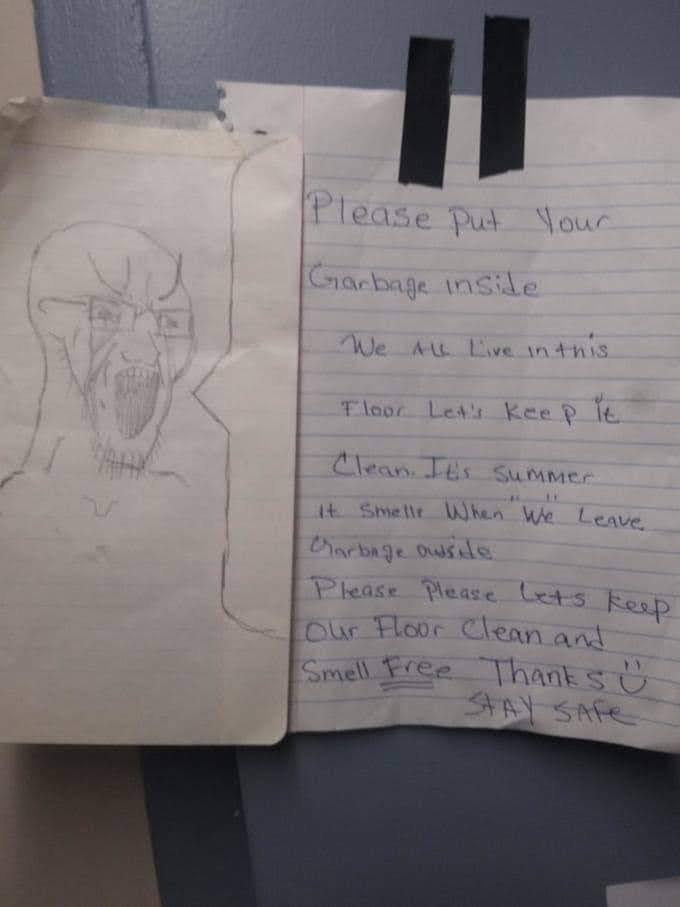 Please put Your
Garbage inside
We ALL Live in this
Floor Let's keep it
Clean. It's summer
it smells When "We" Leave
Garbage owside
Please Please Lets keep
Our Floor Clean and
Smell Free Thanks ü
STAY SAFe